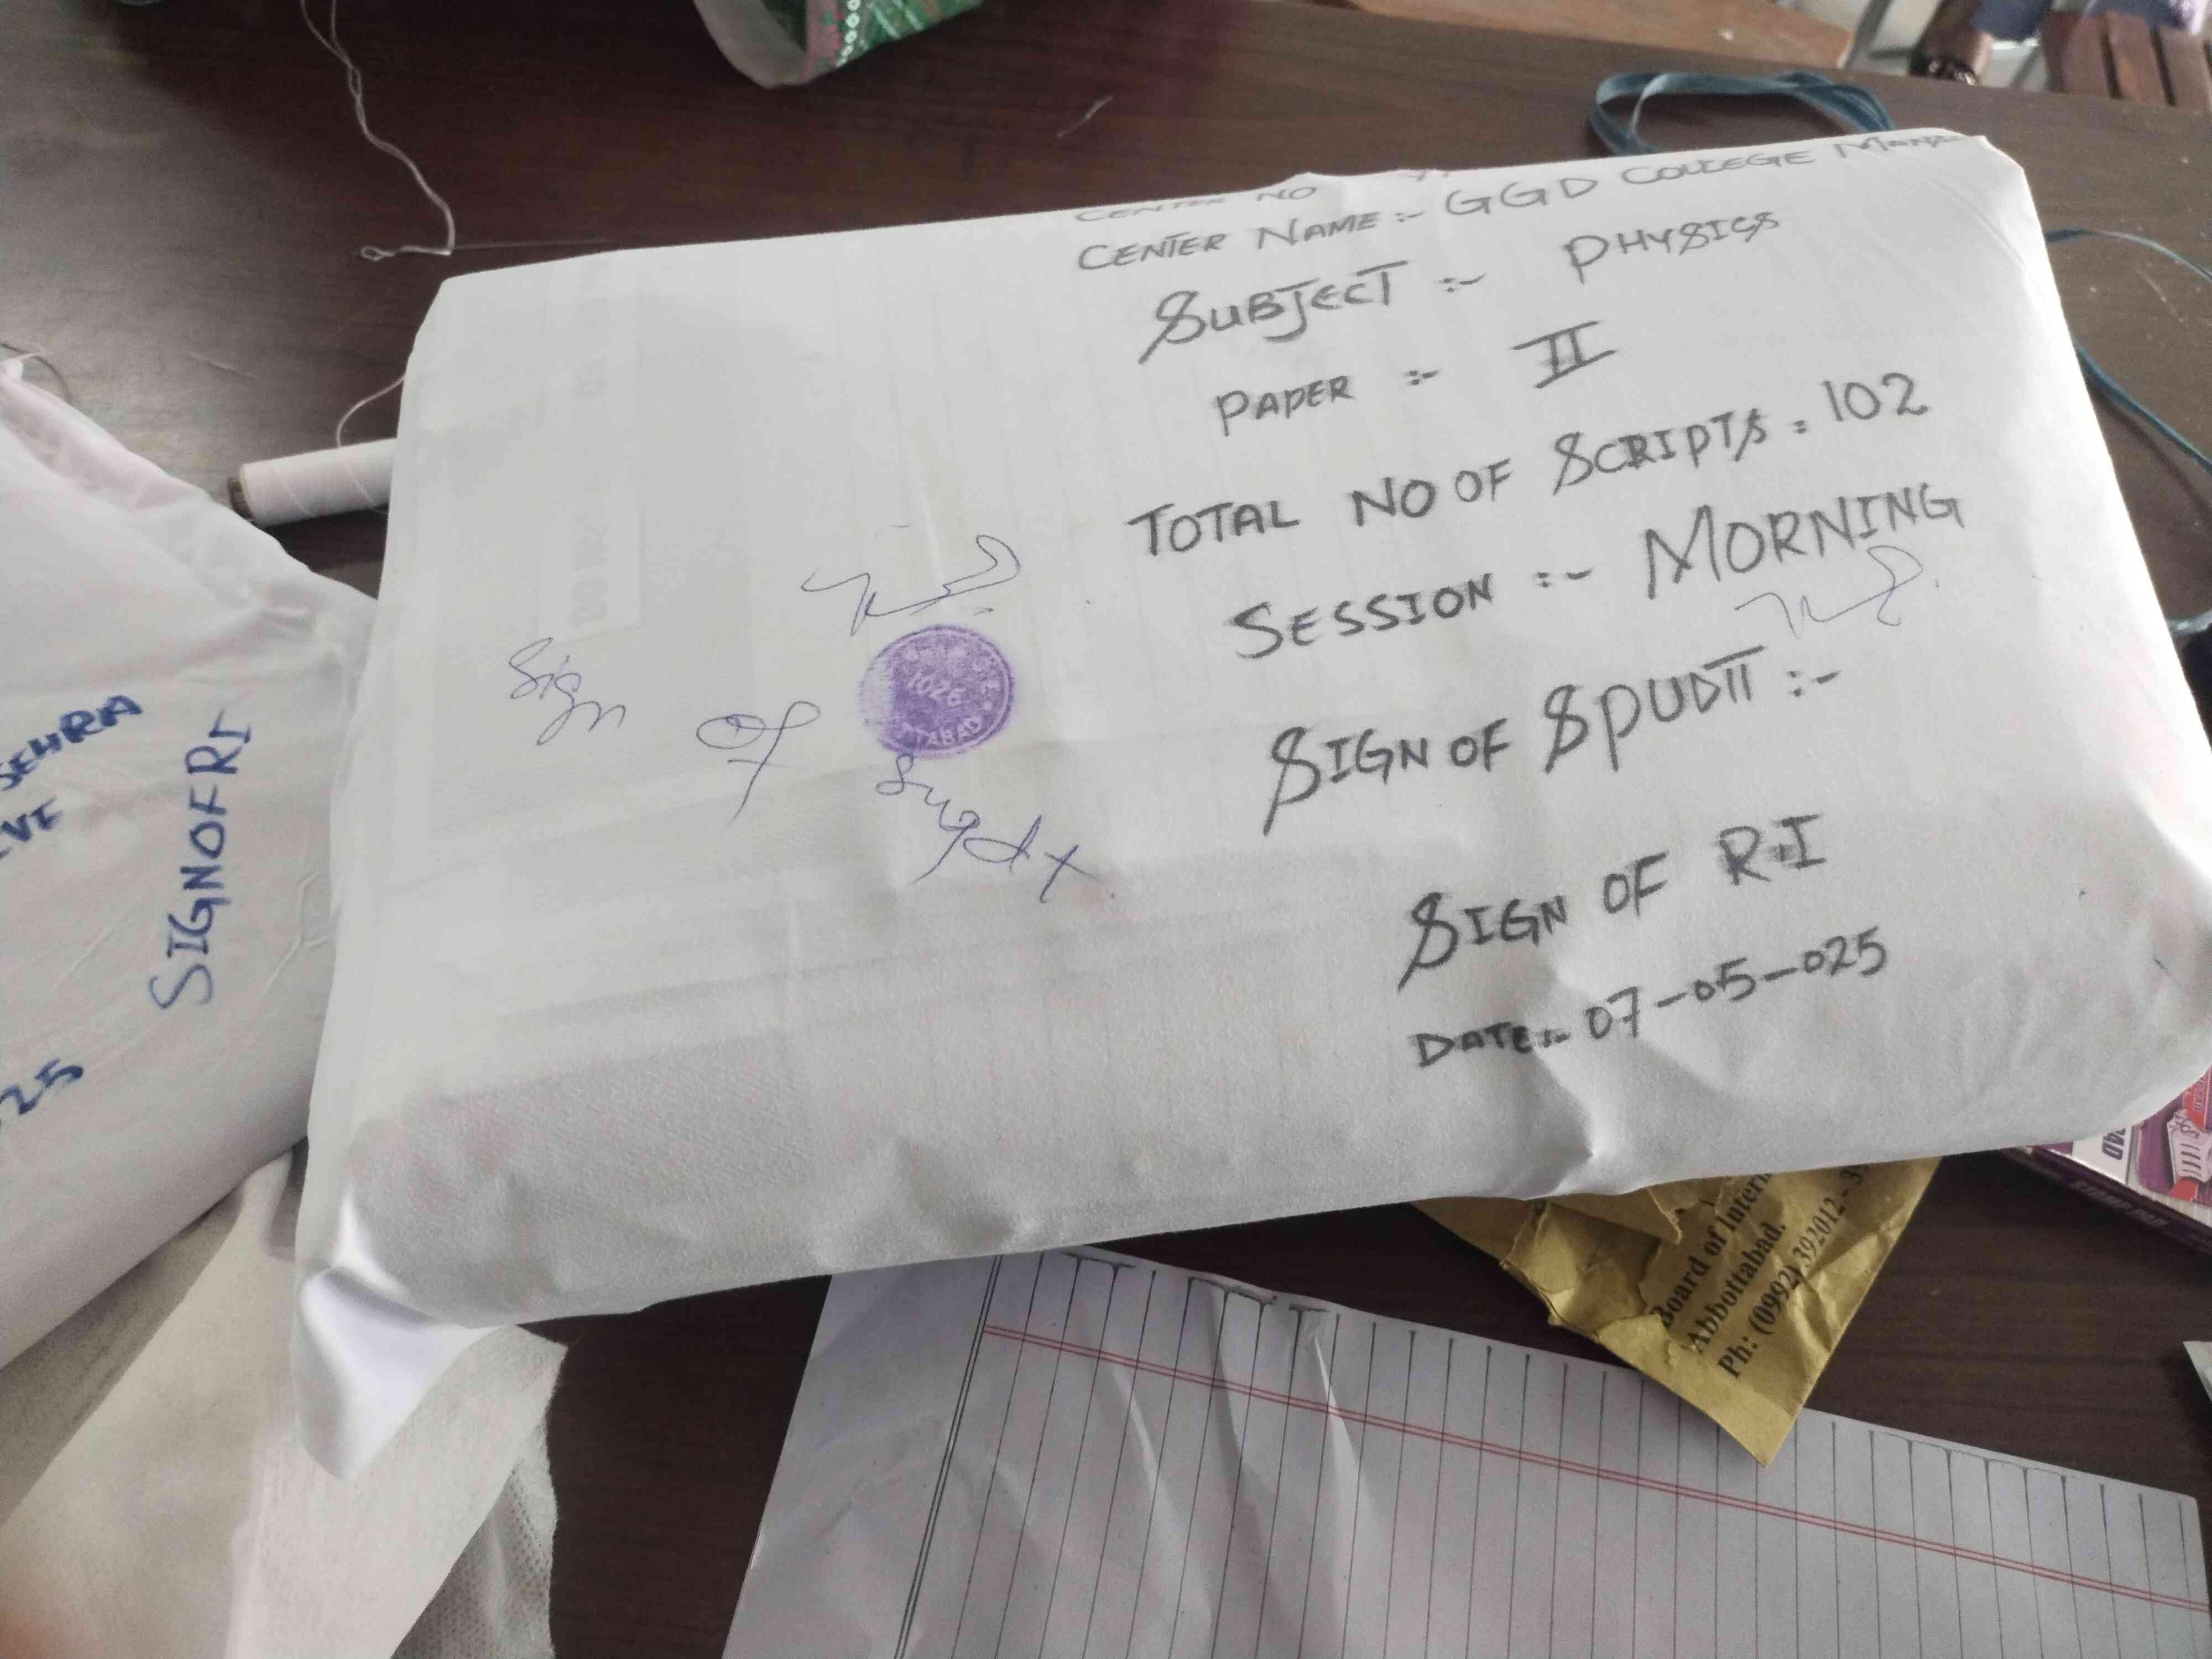 CENTER NO
CENTER NAME:- GGD COLLEGE
SUBJECT :- PHYSICS
PAPER :- II
TOTAL NO OF SCRIPTS = 102
SESSION :- MORNING
SIGN OF SPUDTT :-
SIGN OF R.I
DATE:- 07-05-025
Sign of Supdt
1026
TTABAD
SEHRA
SIGN OF RI
25
Board of Inter
Abbottabad.
Ph: (0992) 392012 - 3
STAMP PAD